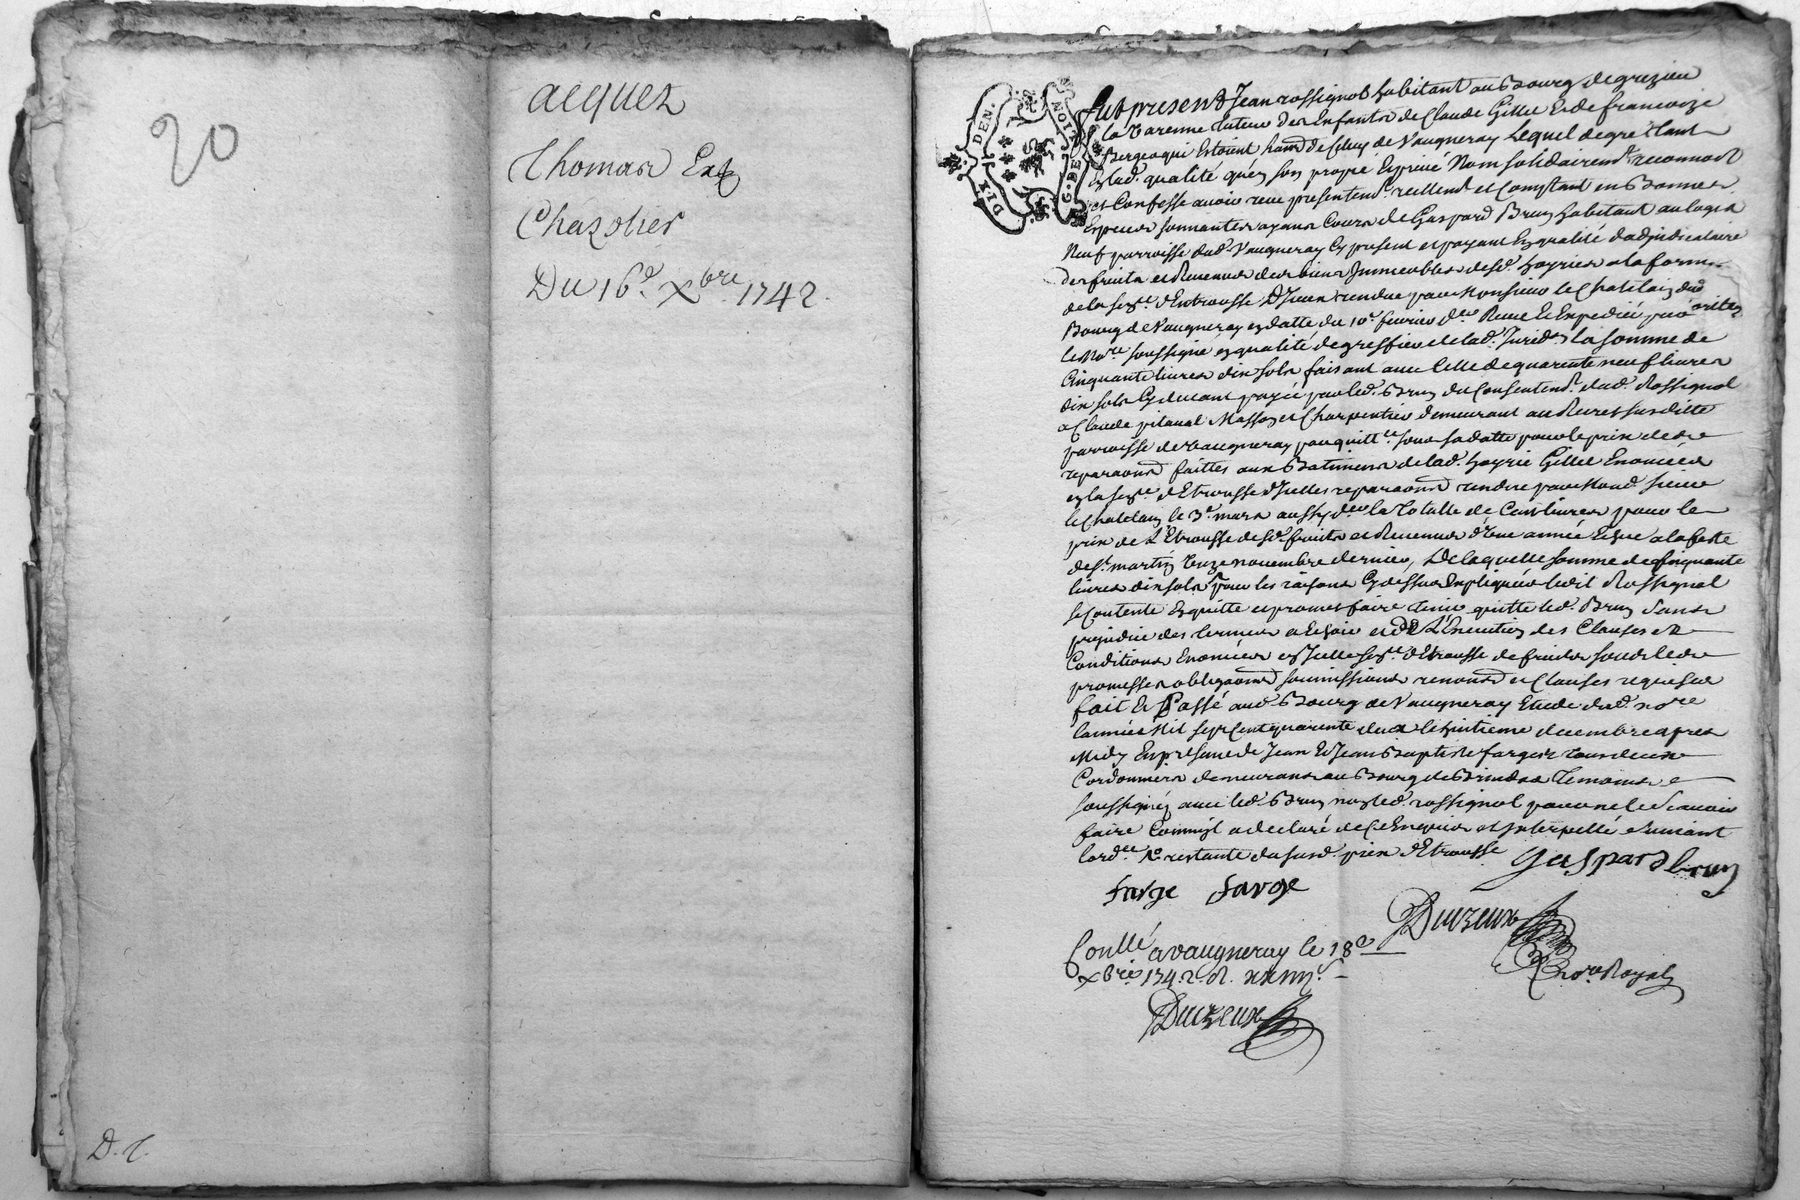 20
acquez
Thomas Et
Chazotier
Du 16e. Xbre 1742.
D. T.
DIX DEN.
G. DE LION
Fut present Jean rossignol habitant au Bourg de grezieu
la Varenne tuteur des Enfants de Claude Gillet Et de francoize
Bergeo qui Estoient hants de Celuy de Vaugneray Lequel de gre tant
Esd. qualité qu'en son propre Et privé Nom solidairemt. reconnoit
et Confesse avoir reçu presentemt. reellemt. et Comptant en Bonnes
Especes sonnantes ayans Cours de Gaspard Brun habitant au logis
Neuf parroisse dud. Vaugneray Cy present et payant En qualité d'adjudicataire
des fruits et Revenus des biens Immeubles desd. hoyries a la forme
de la sence. d'Estrousse d'Iceux rendue par Monsieur le Chatelain dud
Bourg de Vaugneray en datte du 10e. fevrier der. Reçue Et Expediée par
le Nore. soussigné en qualité de greffier de lad. Juridn. la somme de
Cinquante livres dix sols faisant avec Celle de quarente neuf livres
dix sols Cy devant payée par led. Brun du Consentemt. dud. Rossignol
a Claude pitaval Masson et Charpentier demeurant au Recret susditte
parroisse de Vaugneray par quittce. sous sa datte pour le prix de
reparaons faittes aux Batiments de lad. hoyrie Gillet Enoncées
en la sence. d'Etrousse d'Icelles reparaons rendue par Mond. sieur
le Chatelain le 3e. mars aussy der. la Totalle de Cent livres pour le
prix de L'Etrousse desd. fruits et Revenus d'Une année Echue a la feste
de St. martin Onze novembre dernier, De laquelle somme de Cinquante
livres dix sols pour les raisons Cy dessus Expliquées ledit Rossignol
se Contente En quitte et promet faire tenir quitte led. Brun Sans
prejudice des termes a Echoir et de L'Execution des Clauses et
Conditions Enoncées en Icelle sence. d'Etrousse de fruits sous
promesses obligaons soumissions renonons et Clauses requises
fait Et Passé aud. Bourg de Vaugneray Etude dud. nore
l'année Mil sept Cent quarente deux le huitieme decembre apres
Midy En presence de Jean Et Jean Baptiste farges tous deux
Cordonniers demeurans au Bourg de Brindas temoins
soussignés avec led. Brun non led. rossignol pour ne le Scavoir
faire Comme il a declaré de Ce Enquis et Interpellé suivant
lordce. restante du susd. prix d'Etrousse Gaspard brun
farge farge
Duczeux
nore Royal
Conllé a vaugneray le 18e
Xbre. 1742. R.
Duczeux